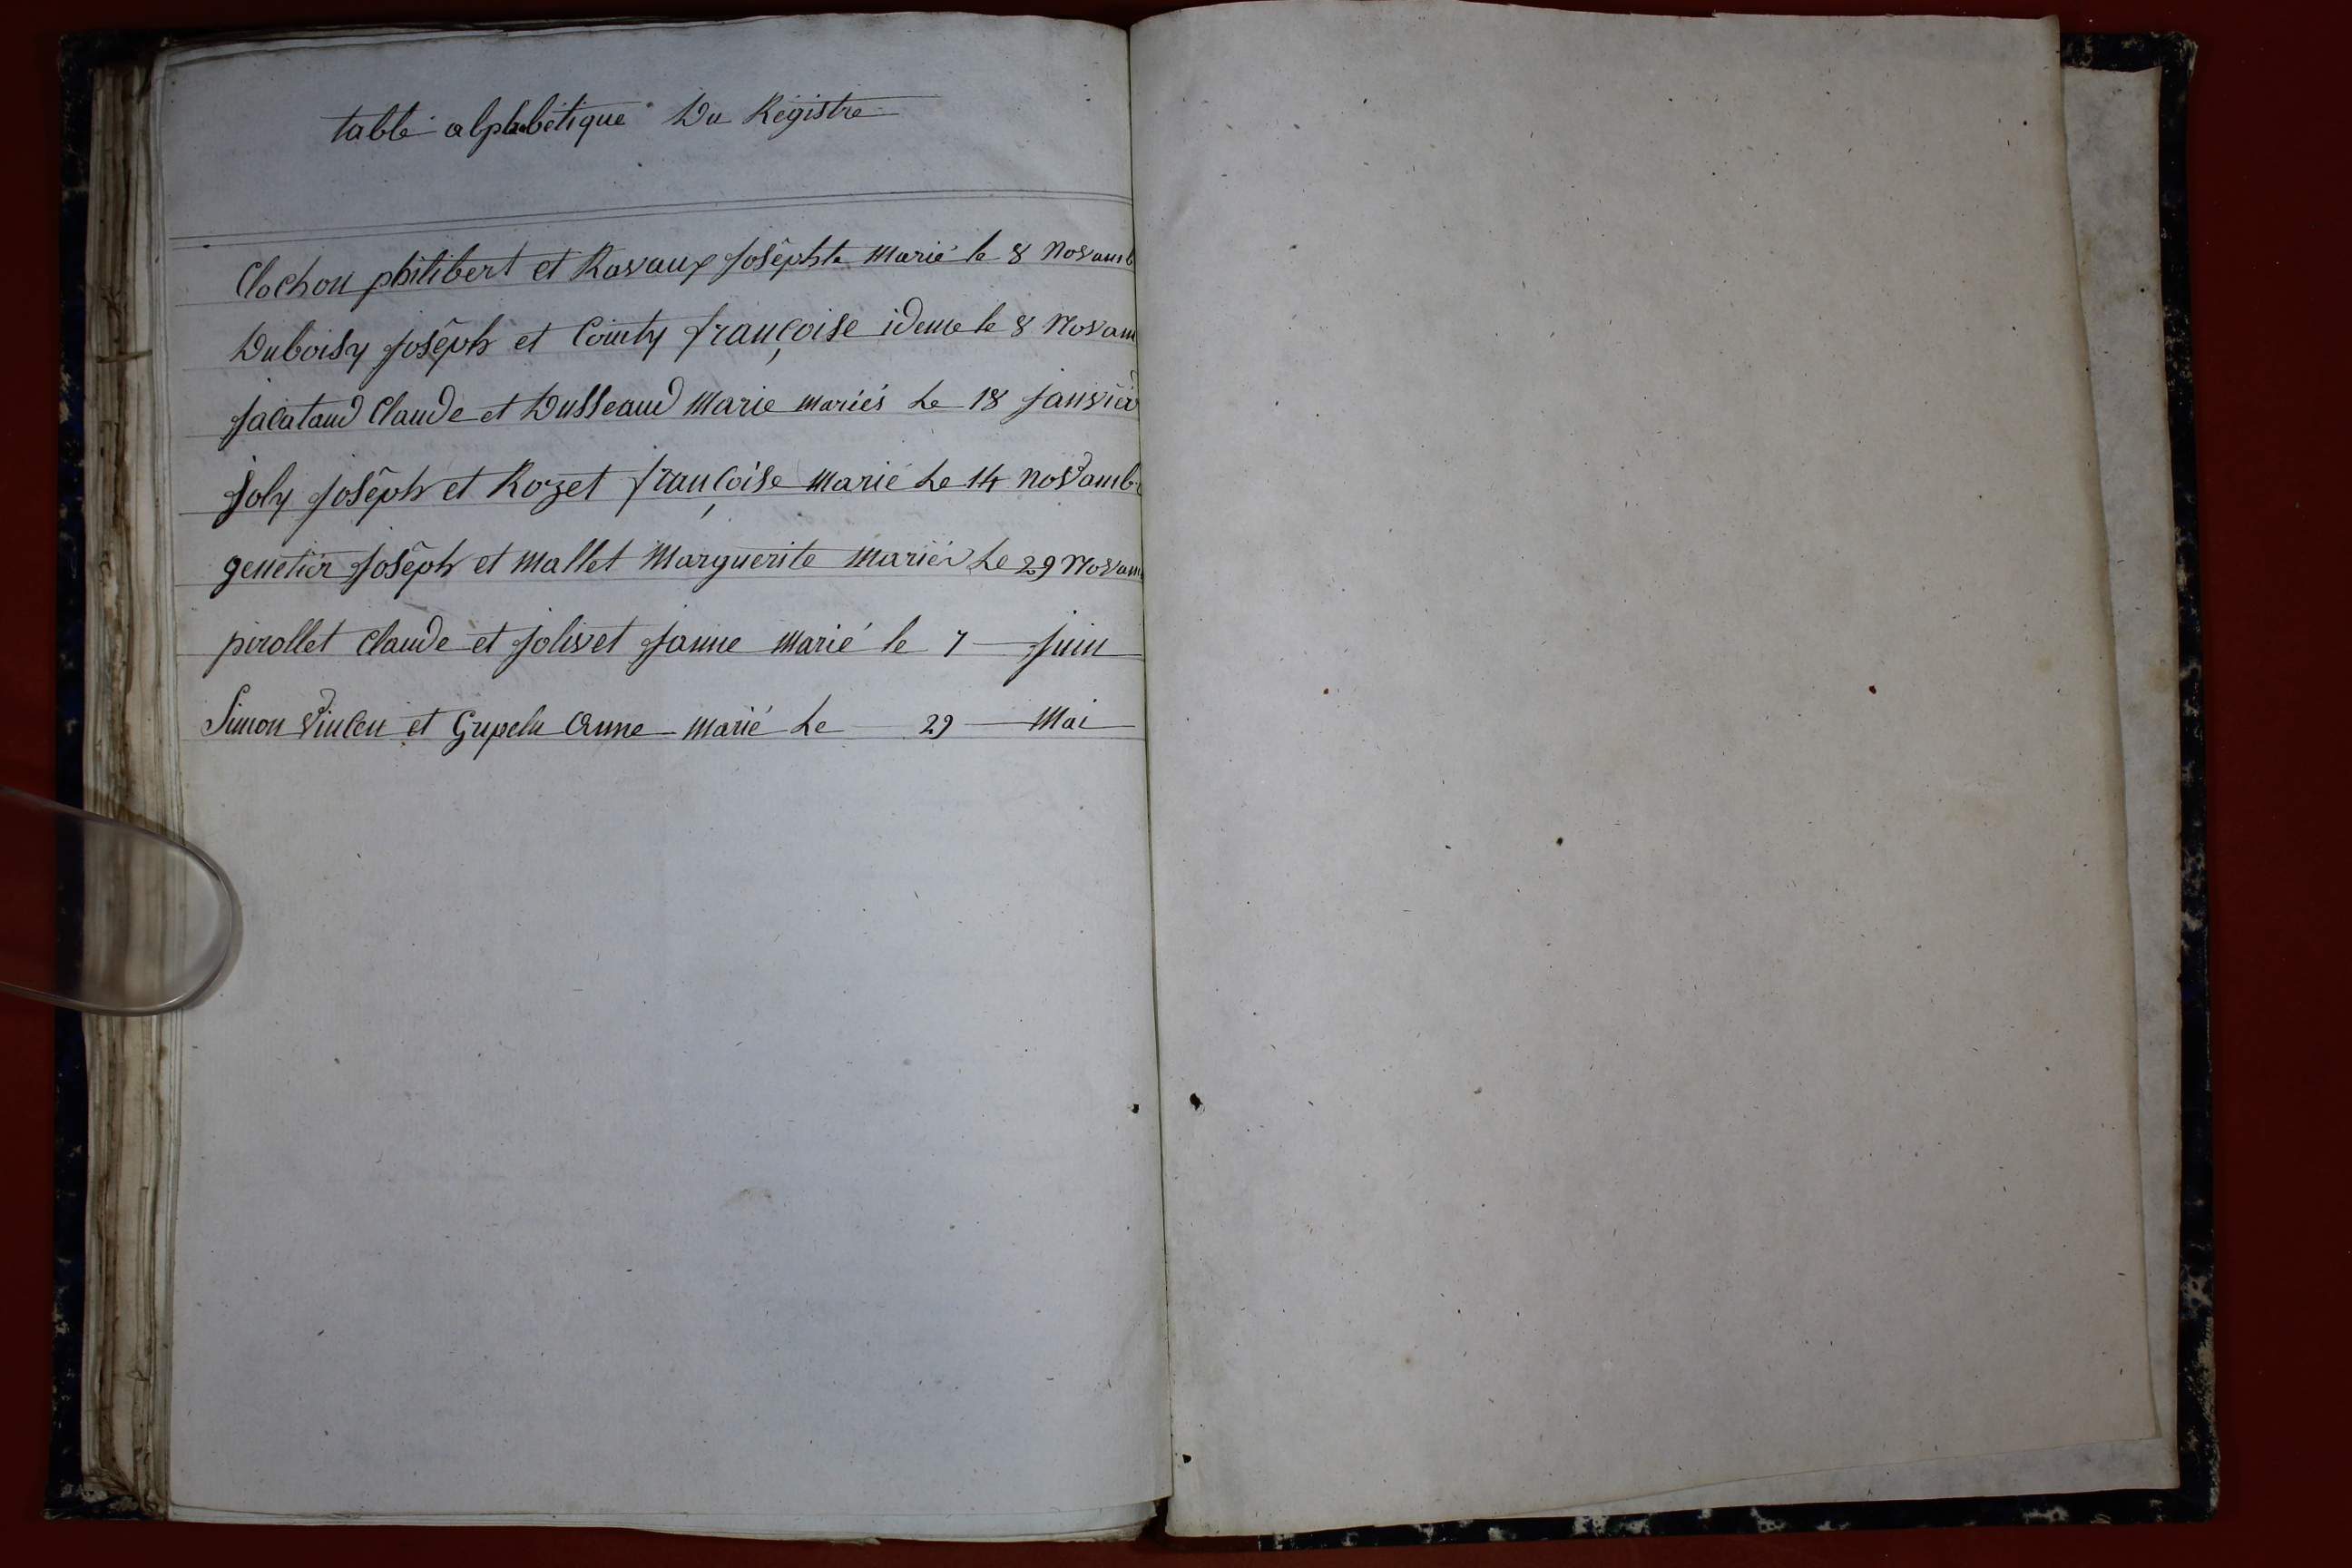 table alphabétique Du Régistre
Clochon philibert et Ravaux Josephte Marié le 8 Novamb
Duboisy Joseph et Cointy françoise ideme le 8 Novam
Jacataud Claude et Dusseaud Marie mariés Le 18 Janvier
Joly Joseph et Rozet françoise Marié Le 14 Novamb
genetier Joseph et Mallet Marguerite Mariés Le 29 Novam
pirollet Claude et Jolivet Janne Marié le 7 Juin
Simon Vincen et Grupelu Anne Marié Le 29 Mai